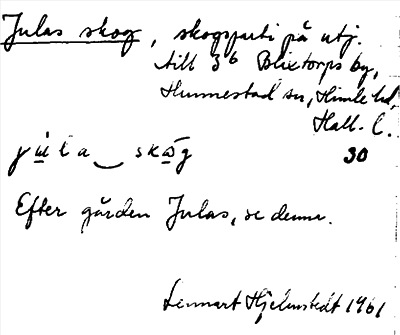 Julas skog, skogsparti på utj.
till 3⁶ Blixtorps by,
Hunnestad sn, Himle hd,
Hall. l.
jula‿skog 30
Efter gården Julas, se denna.
Lennart Hjelmstedt 1961